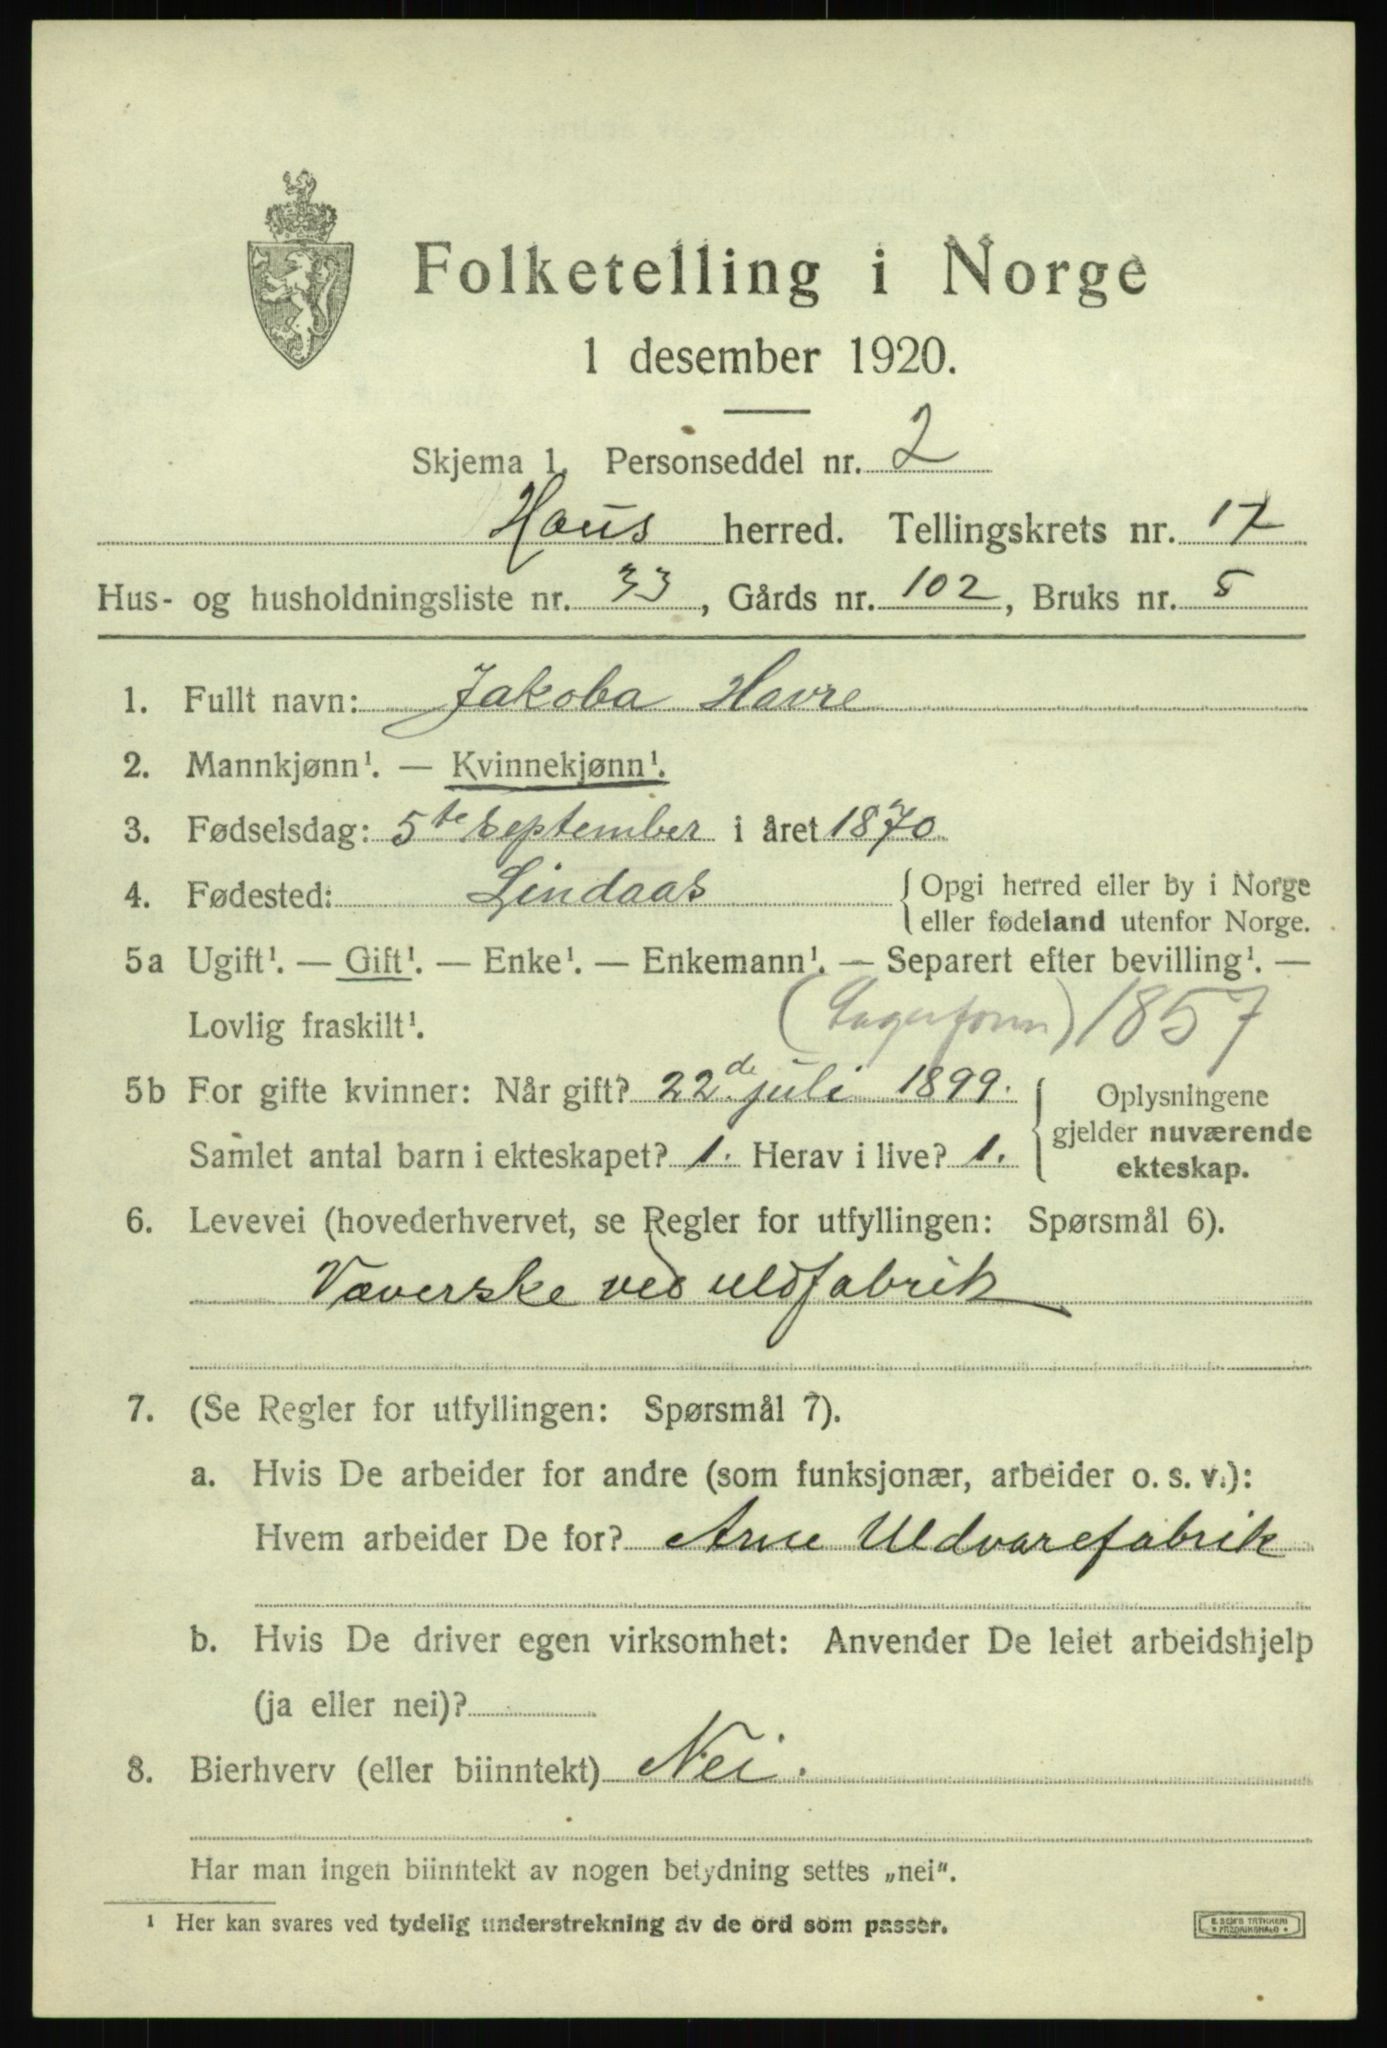 Folketelling i Norge
1 desember 1920.
Skjema 1. Personseddel nr. 2
Haus herred. Tellingskrets nr. 17
Hus- og husholdningsliste nr. 33, Gårds nr. 102, Bruks nr. 5
1. Fullt navn: Jakoba Havre
2. Mannkjønn¹. — Kvinnekjønn¹.
3. Fødselsdag: 5te September i året 1870
4. Fødested: Lindaas {Opgi herred eller by i Norge
eller fødeland utenfor Norge.
5a Ugift¹. — Gift¹. — Enke¹. — Enkemann¹. — Separert efter bevilling¹. —
Lovlig fraskilt¹. 1857
5b For gifte kvinner: Når gift? 22de juli 1899. { Oplysningene
gjelder nuværende
Samlet antal barn i ekteskapet? 1. Herav i live? 1. ekteskap.
6. Levevei (hovederhvervet, se Regler for utfyllingen: Spørsmål 6).
Væverske ved uldfabrik
7. (Se Regler for utfyllingen: Spørsmål 7).
a. Hvis De arbeider for andre (som funksjonær, arbeider o. s. v.):
Hvem arbeider De for? Arne Uldvarefabrik
b. Hvis De driver egen virksomhet: Anvender De leiet arbeidshjelp
(ja eller nei)?
8. Bierhverv (eller biinntekt) Nei.
Har man ingen biinntekt av nogen betydning settes „nei“.
¹ Her kan svares ved tydelig understrekning av de ord som passer.
E. SEM'S TRYKKERI
FREDRIKSHALD